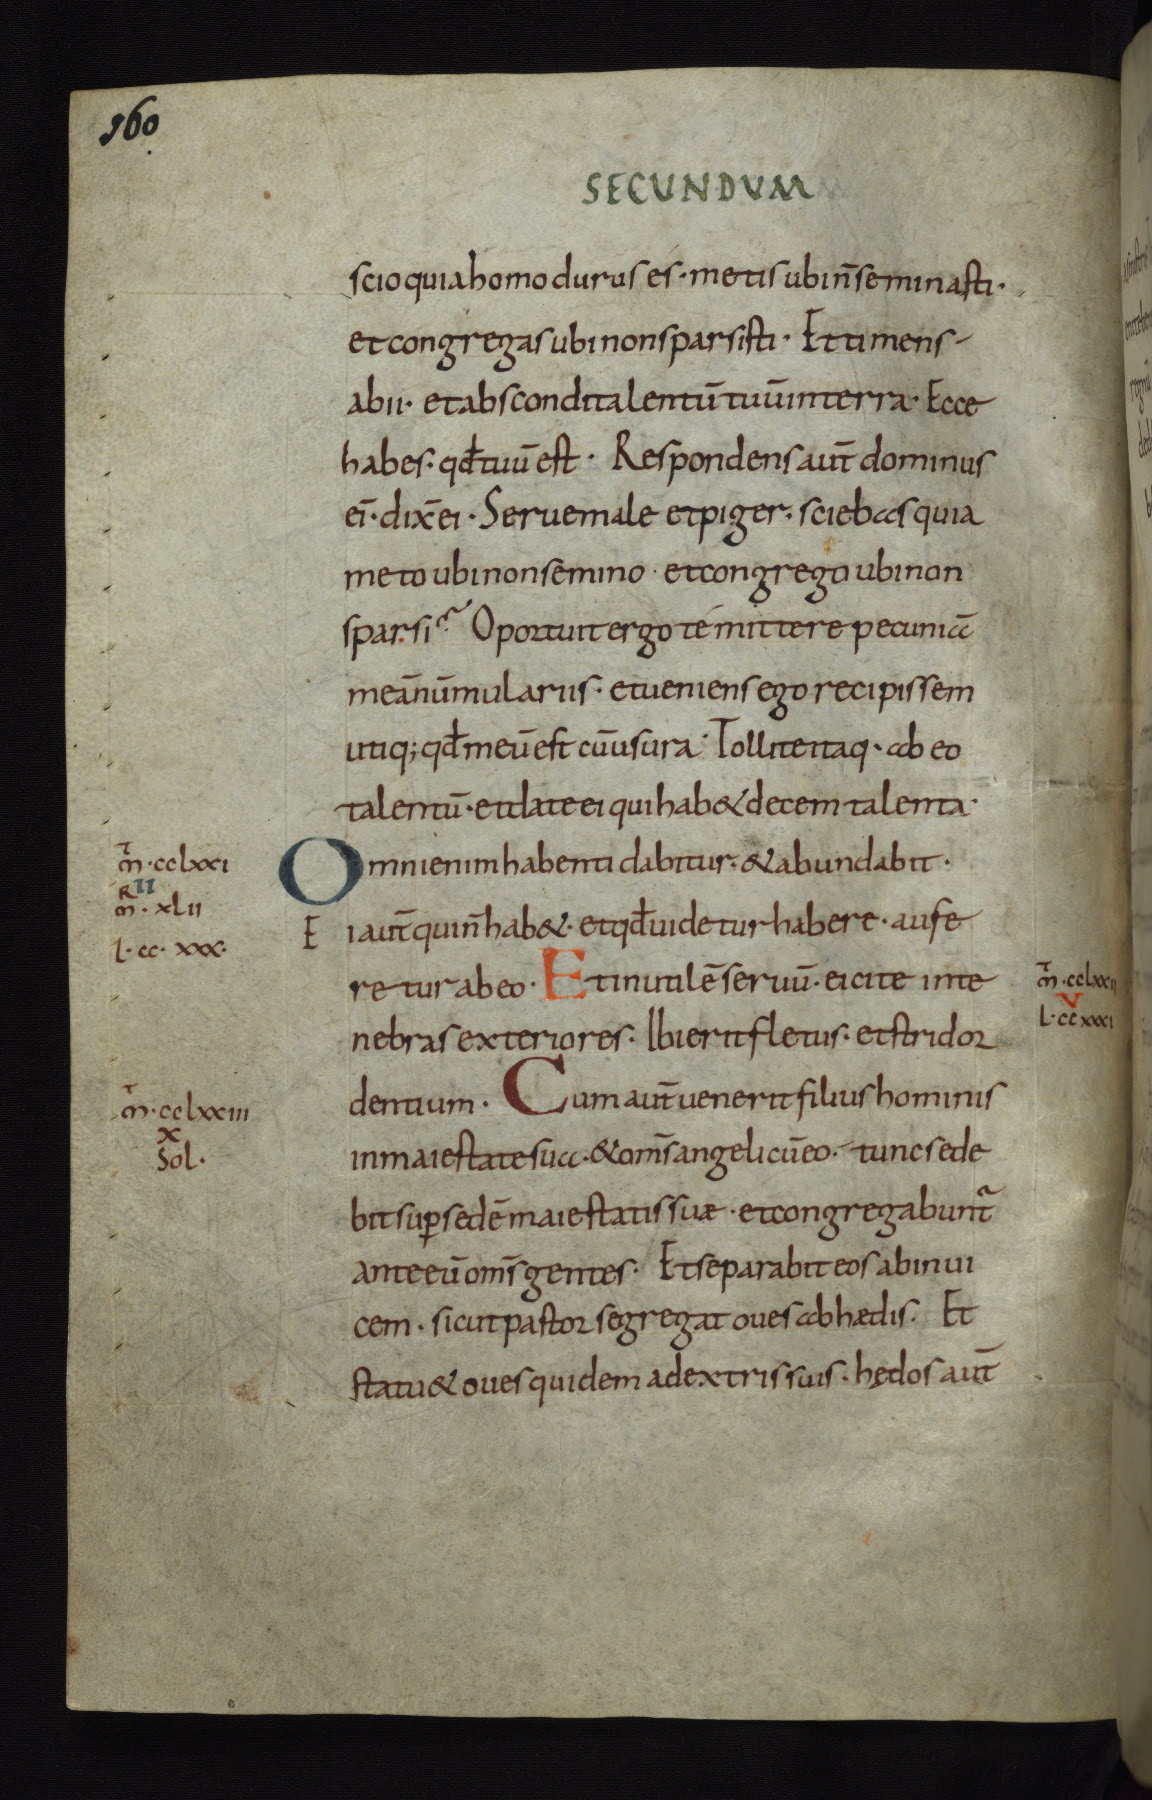 160
SECUNDUM
scio quia homo durus es · metis ubi n̄ seminasti ·
et congregas ubi non sparsisti · Et timens
abii · et abscondi talentū tuū in terra · Ecce
habes · qđ tuū est · Respondens aut̄ dominus
ei᷒ · dix̄ ei · Serue male et piger · sciebas quia
meto ubi non semino · et congrego ubi non
sparsi Oportuit ergo te mittere pecuniā
meā nūmulariis · et ueniens ego recipissem
utiq; qđ meū est cū usura · Tollite itaq · ab eo
talentū · et date ei qui hab& decem talenta ·
m̄ · cclxxi
Omni enim habenti dabitur · & abundabit ·
R II
m̄ · xlii
Ei aut̄ qui n̄ hab& · et qđ uidetur habere · aufe
L · cc · xxx ·
retur ab eo · Et inutilē seruū · eicite in te
m̄ · cclxxii
V
L · ccxxxi
nebras exteriores · Ibi erit fletus · et stridor
dentium · Cum aut̄ uenerit filius hominis
m̄ · cclxxiii
X
Sol ·
in maiestate sua · & om̄s angeli cū eo · tunc sede
bit sup̱ sedē maiestatis suæ · et congregabunt᷒
ante eū om̄s gentes · Et separabit eos ab inui
cem · sicut pastor segregat oues ab hædis · Et
statu& oues quidem a dextris suis · hędos aut̄